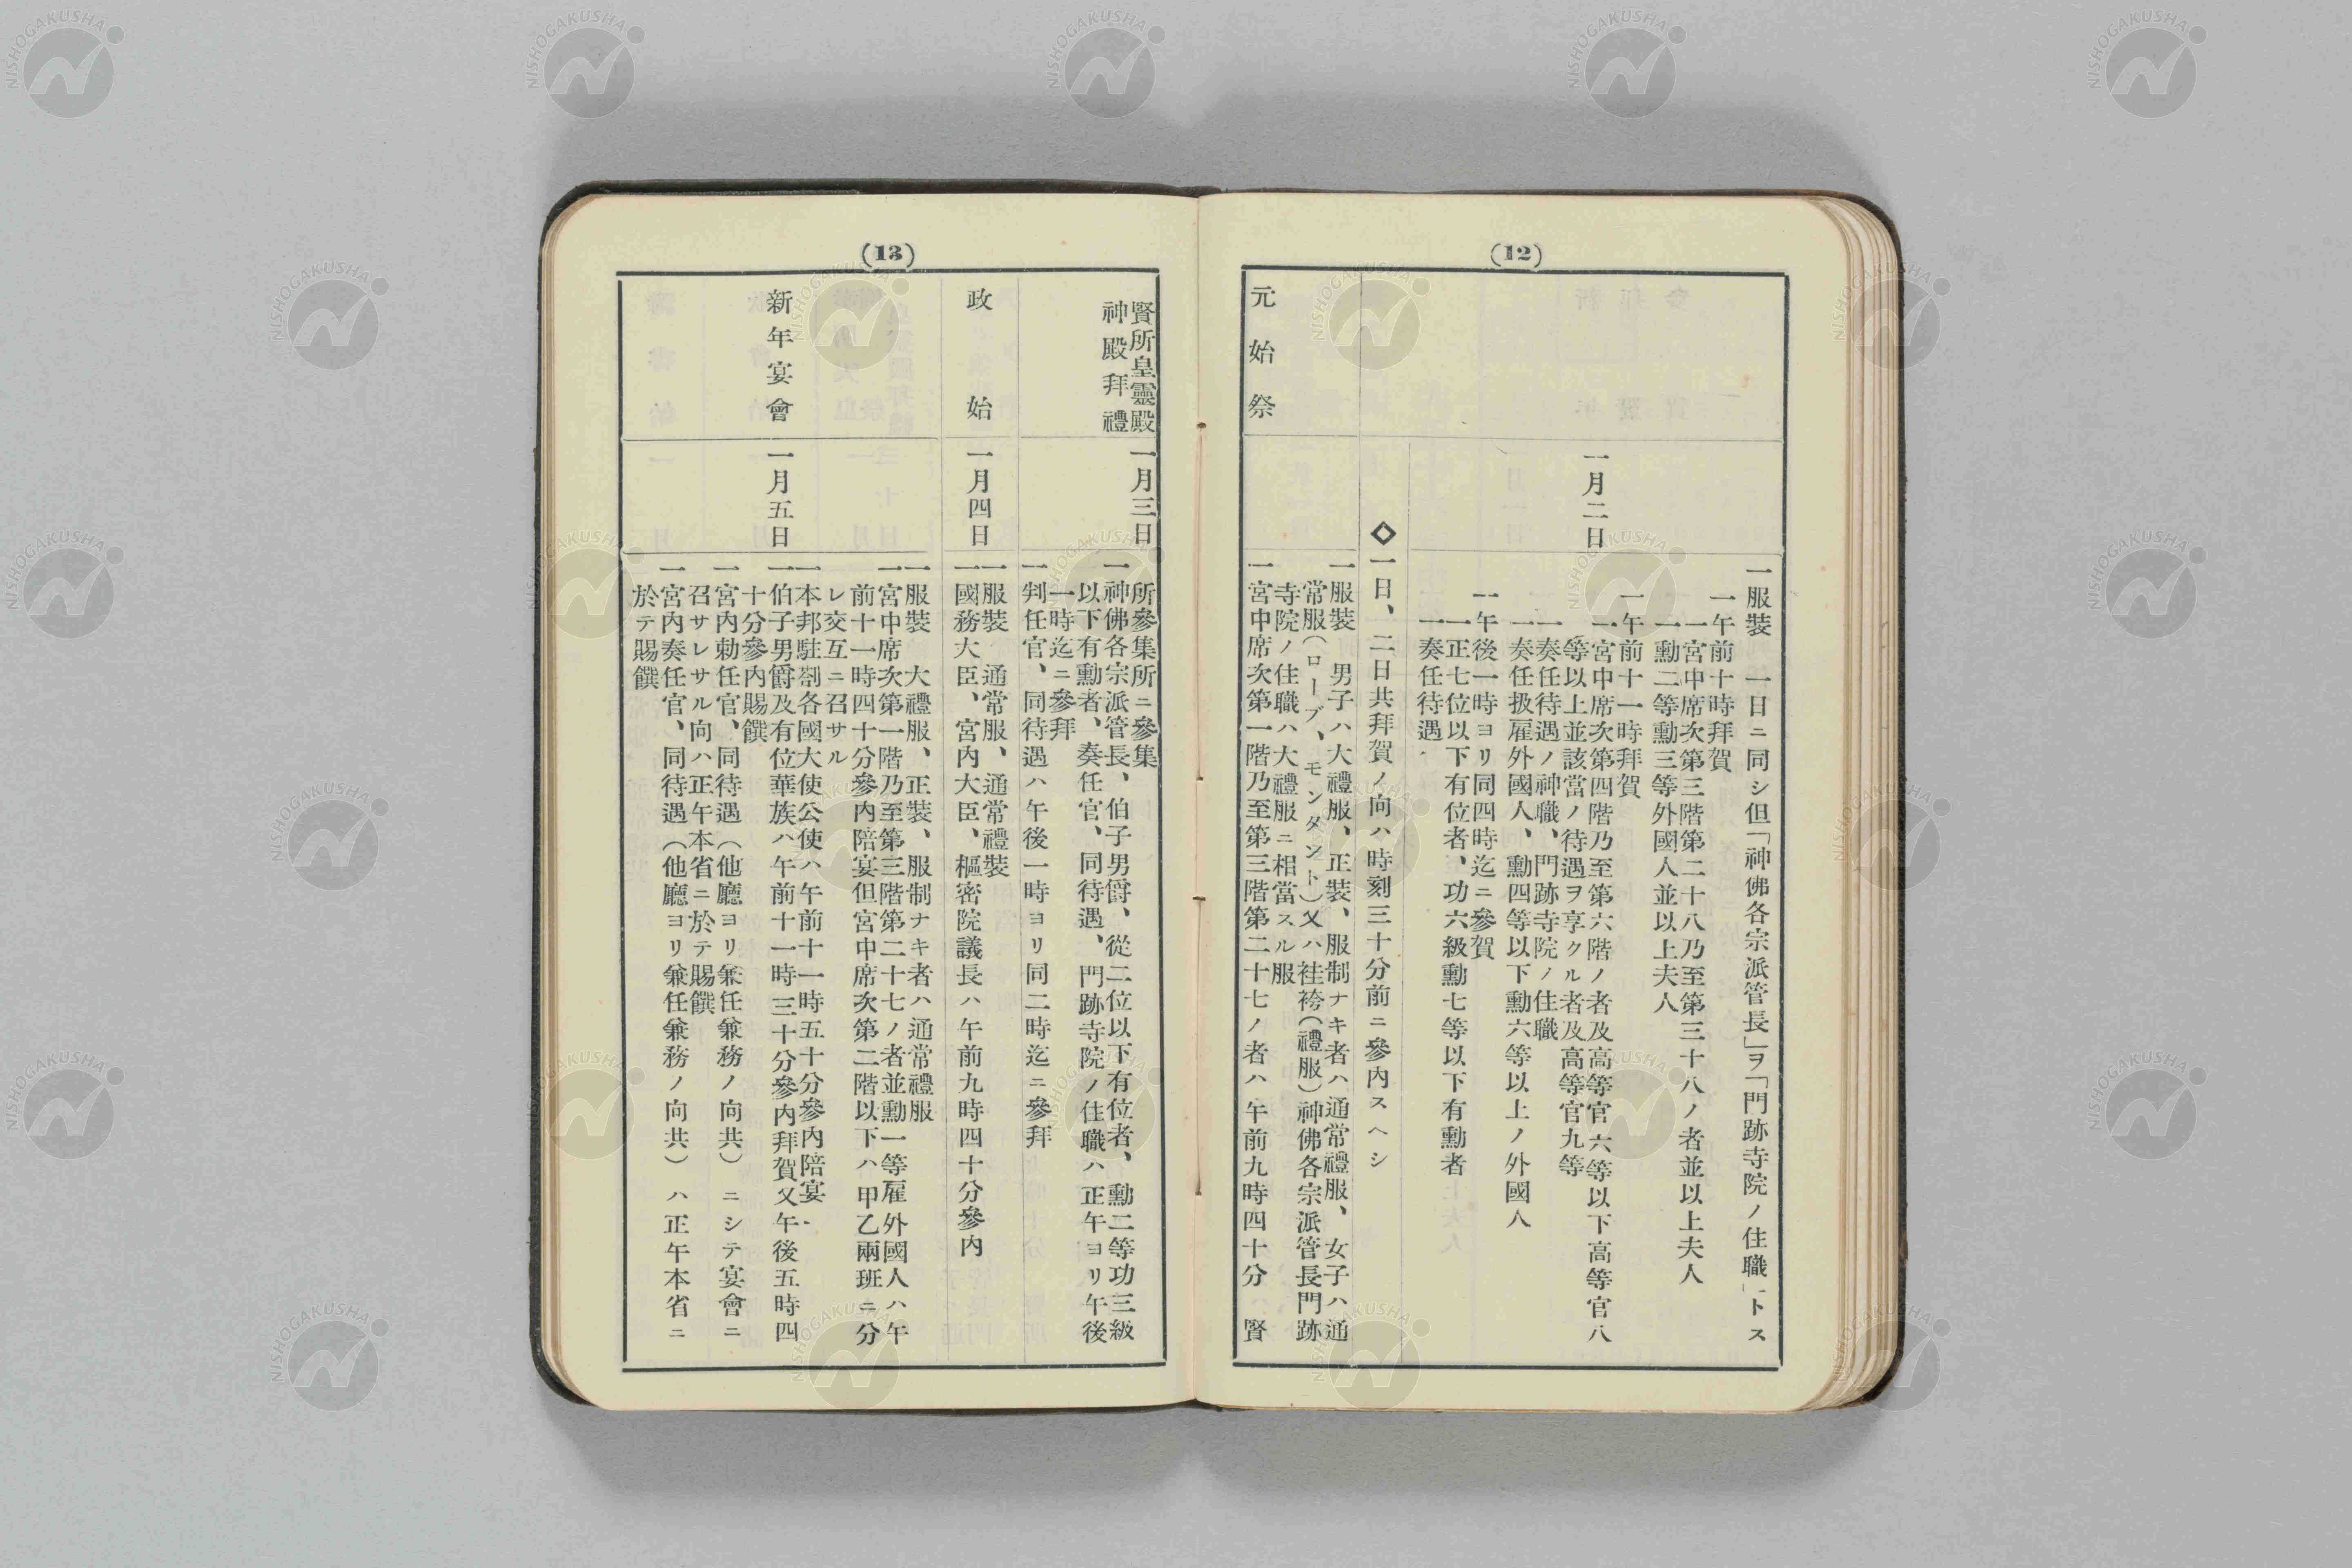 (12)
一月二日
一服裝　一日ニ同シ但「神佛各宗派管長」ヲ「門跡寺院ノ住職」トス
一午前十時拜賀
一宮中席次第三階第二十八乃至第三十八ノ者並以上夫人
一勳二等勳三等外國人並以上夫人
一午前十一時拜賀
一宮中席次第四階乃至第六階ノ者及高等官六等以下高等官八
等以上並該當ノ待遇ヲ享クル者及高等官九等
一奏任待遇ノ神職、門跡寺院ノ住職
一奏任扱雇外國人、勳四等以下勳六等以上ノ外國人
一午後一時ヨリ同四時迄ニ參賀
一正七位以下有位者、功六級勳七等以下有勳者
一奏任待遇
◇一日、二日共拜賀ノ向ハ時刻三十分前ニ參內スヘシ
元始祭
一服裝　男子ハ大禮服、正裝、服制ナキ者ハ通常禮服、女子ハ通
常服(ローブ、モンダント)又ハ袿袴(禮服)神佛各宗派管長門跡
寺院ノ住職ハ大禮服ニ相當スル服
一宮中席次第一階乃至第三階第二十七ノ者ハ午前九時四十分賢
(13)
賢所皇靈殿
神殿拜禮
一月三日
所參集所ニ參集
一神佛各宗派管長、伯子男爵、從二位以下有位者、勳二等功三級
以下有勳者、奏任官、同待遇、門跡寺院ノ住職ハ正午ヨリ午後
一時迄ニ參拜
一判任官、同待遇ハ午後一時ヨリ同二時迄ニ參拜
政始
一月四日
一服裝　通常服、通常禮裝
一國務大臣、宮內大臣、樞密院議長ハ午前九時四十分參內
新年宴會
一月五日
一服裝　大禮服、正裝、服制ナキ者ハ通常禮服
一宮中席次第一階乃至第三階第二十七ノ者並勳一等雇外國人ハ午
前十一時四十分參內陪宴但宮中席次第二階以下ハ甲乙兩班ニ分
レ交互ニ召サル
一本邦駐剳各國大使公使ハ午前十一時五十分參內陪宴
一伯子男爵及有位華族ハ午前十一時三十分參內拜賀又午後五時四
十分參內賜饌
一宮內勅任官、同待遇(他廳ヨリ兼任兼務ノ向共)ニシテ宴會ニ
召サレサル向ハ正午本省ニ於テ賜饌
一宮內奏任官、同待遇(他廳ヨリ兼任兼務ノ向共)ハ正午本省ニ
於テ賜饌
NISHOGAKUSHA